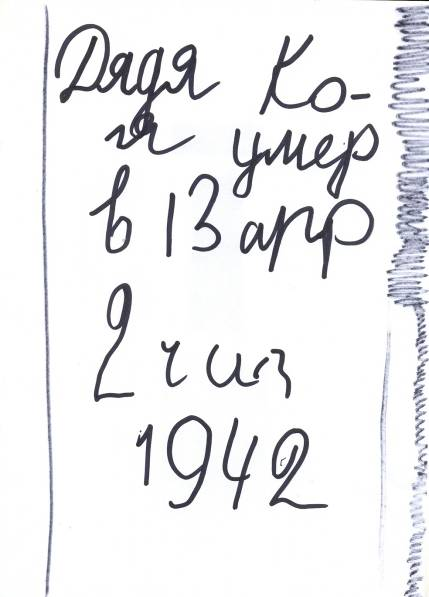 Дядя Ко-
ля умер
в 13 апр
2 ч из
1942